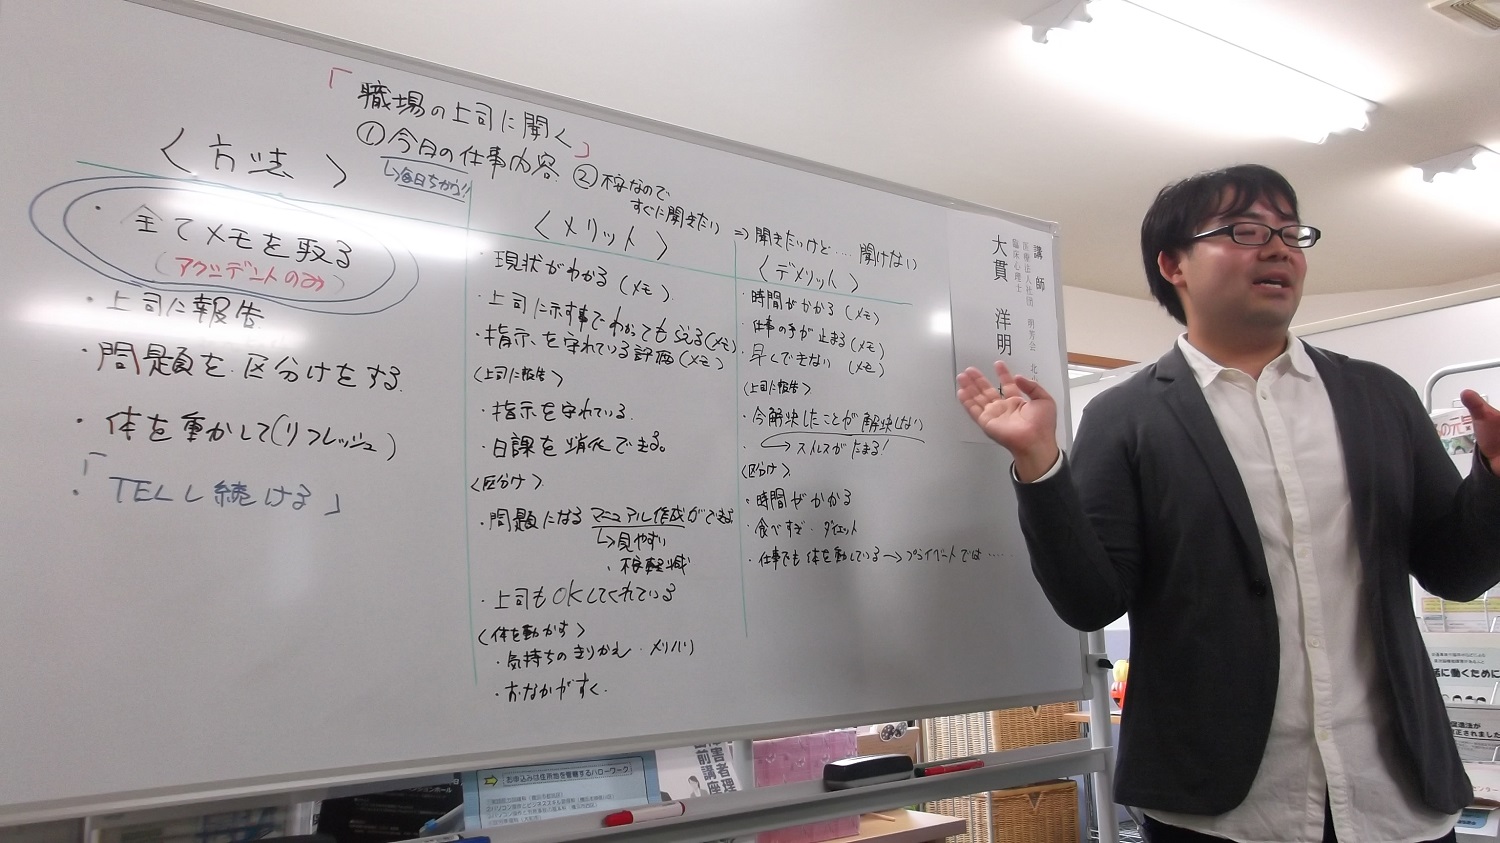 「職場の上司に聞く」
①今日の仕事内容
↳毎日ちがう!!
②不安なので
すぐに聞きたい ⇒ 聞きたいけど‥‥聞けない
〈方法〉
・全てメモを取る
(アクシデントのみ)
・上司に報告
・問題を区分けをする.
・体を動かして(リフレッシュ)
・「TELし続ける」
〈メリット〉
・現状がわかる(メモ)
・上司に示す事でわかってもらえる(メモ)
・指示を守れている評価(メモ)
〈上司に報告〉
・指示を守れている.
・日課を消化できる。
〈区分け〉
・問題になる マニュアル作成ができる
↳見やすい
・不安軽減
・上司もOKしてくれている
〈体を動かす〉
・気持ちのきりかえ・メリハリ
・おなかがすく.
〈デメリット〉
・時間がかかる(メモ)
・仕事の手が止まる(メモ)
・早くできない(メモ)
〈上司に報告〉
・今解決したことが解決しない
→ストレスがたまる!
〈区分け〉
・時間がかかる
・食べすぎ・ダイエット
・仕事でも体を動している→プライベートでは‥‥‥
講師
医療法人社団 明芳会 北
臨床心理士
大貫 洋明
お申込みは住所地を管轄するハローワーク
障害者理
前講座
の元気
話に働くために
促進法が
正されました